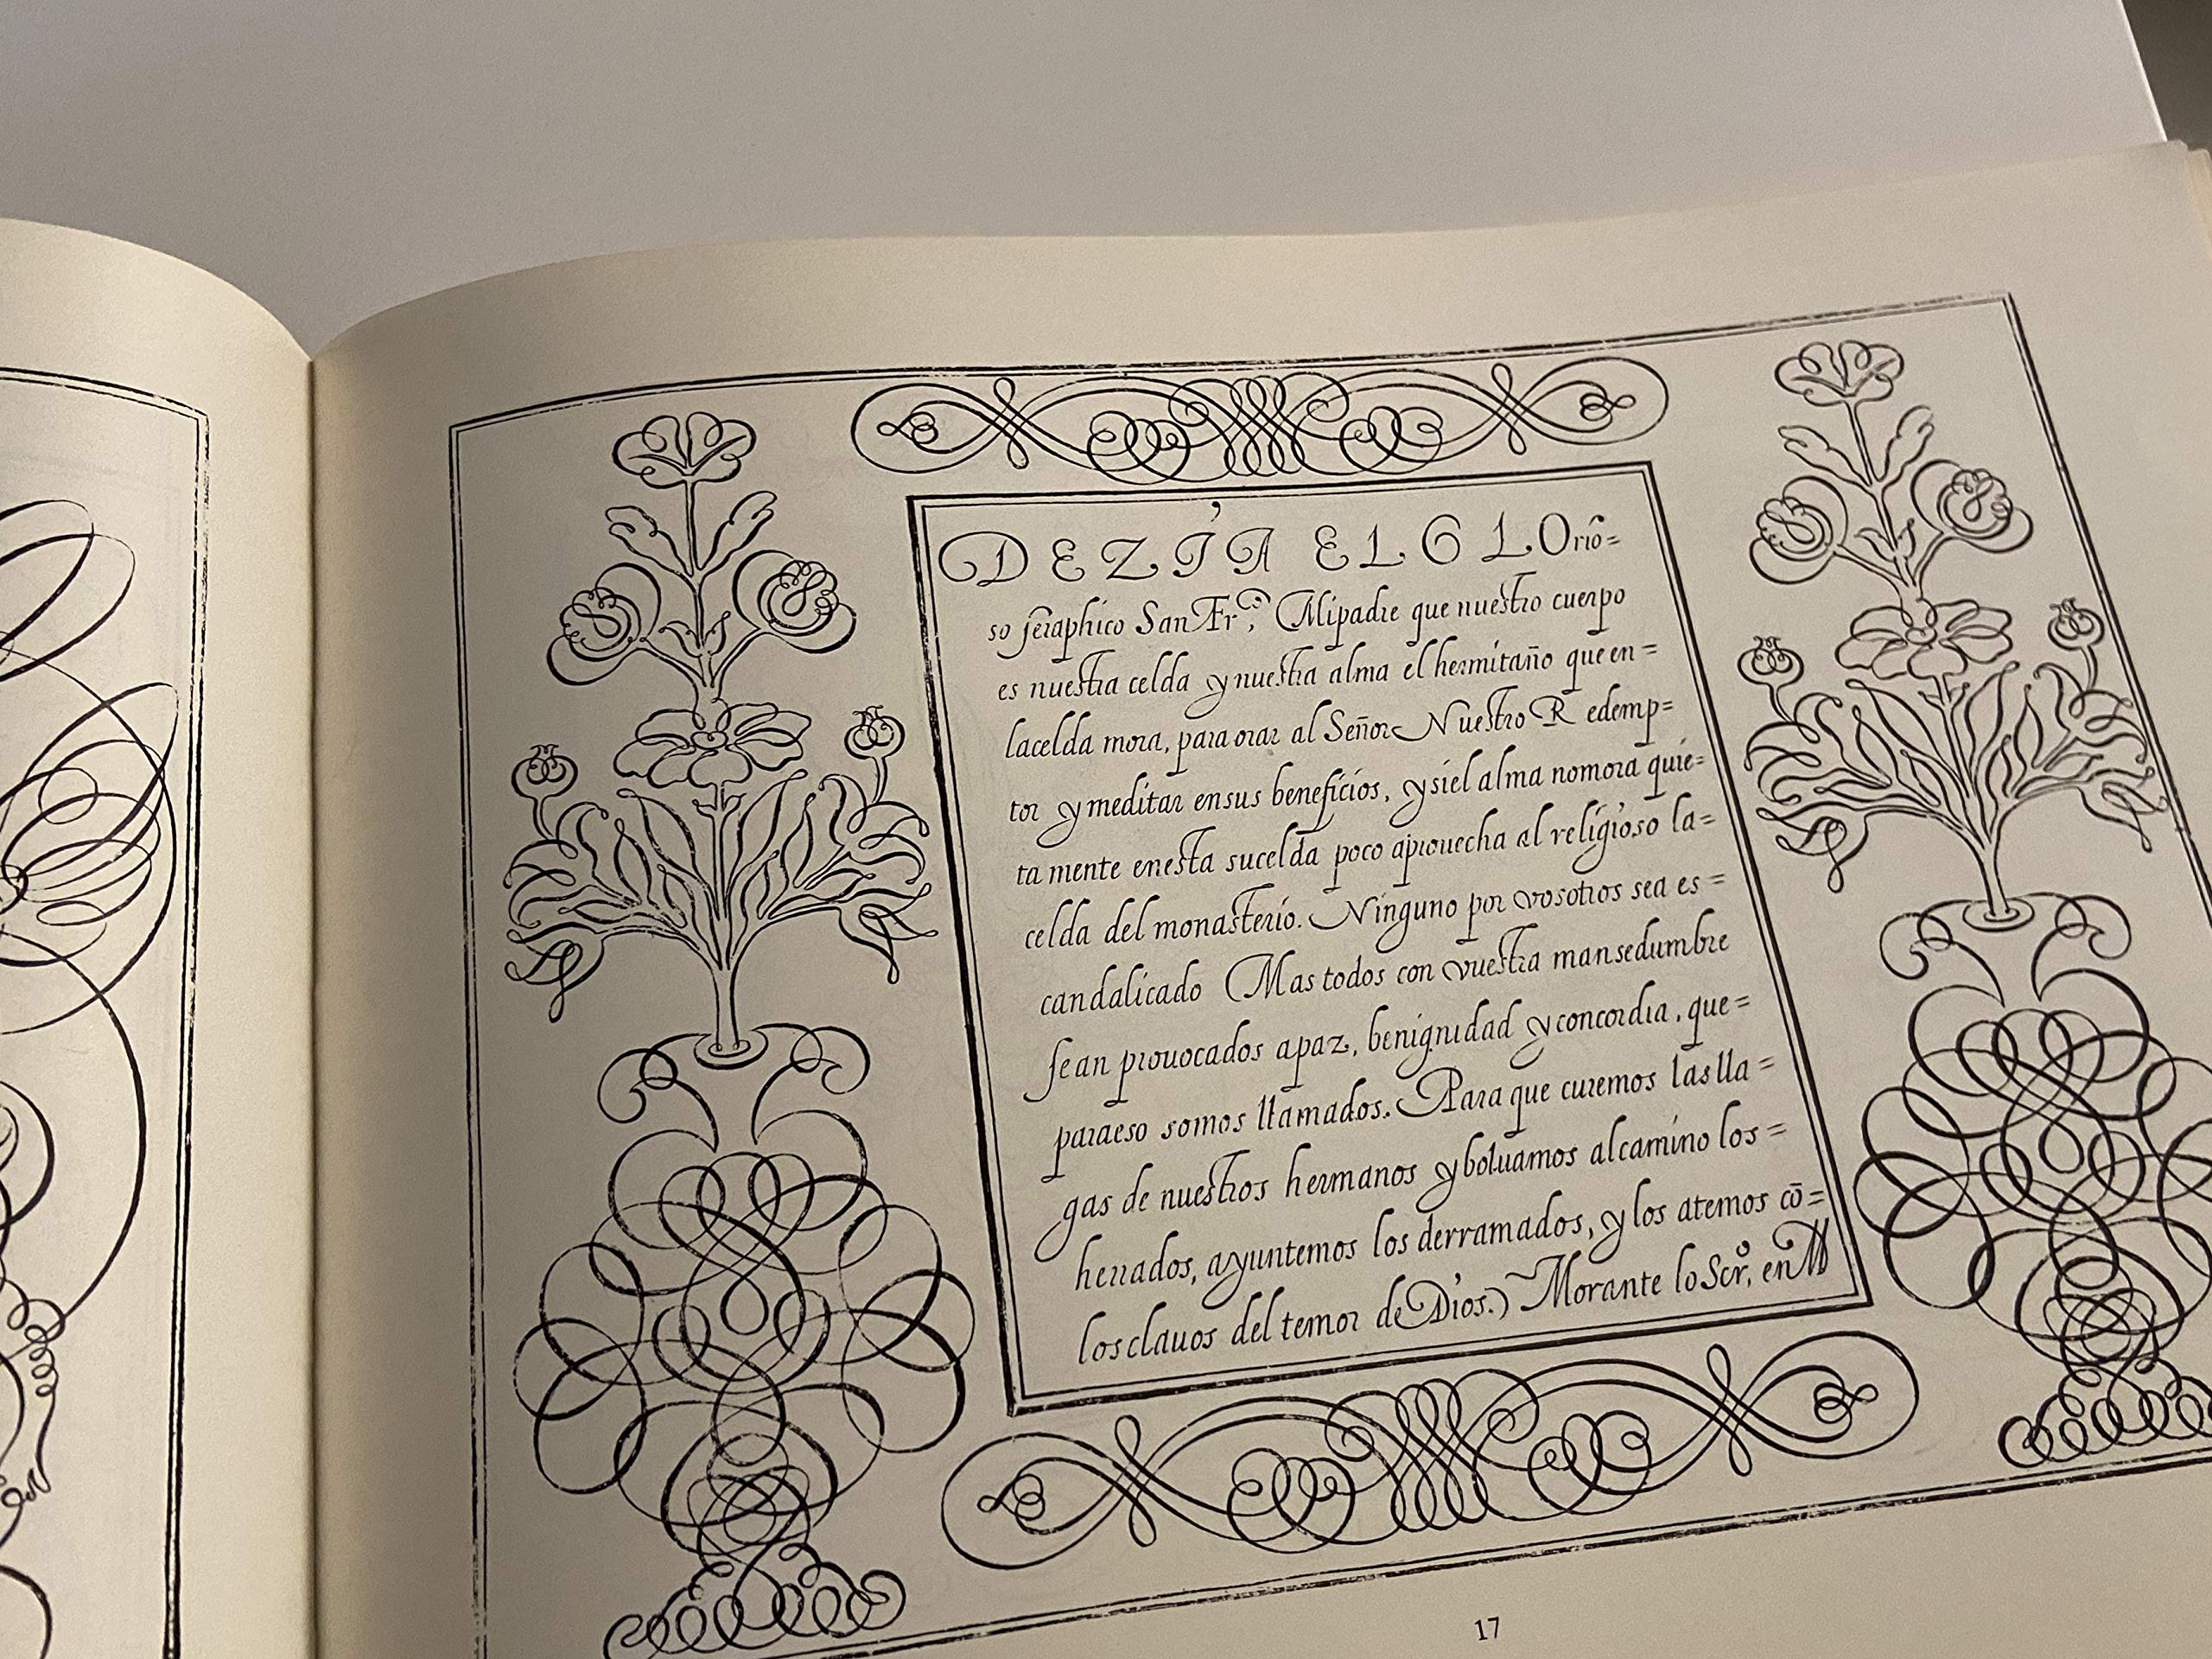 DEZÍA EL GLOrio=
so seraphico San Fr.co Mi padre que nuestro cuerpo
es nuestra celda y nuestra alma el hermitaño que en=
la celda mora, para orar al Señor Nuestro Redemp=
tor y meditar en sus beneficios, y si el alma no mora quie=
ta mente en esta su celda poco aprouecha al religioso la=
celda del monasterio. Ninguno por vosotros sea es=
candalicado Mas todos con vuestra mansedumbre
sean prouocados a paz, benignidad y concordia, que=
para eso somos llamados. Para que curemos las lla=
gas de nuestros hermanos y boluamos al camino los=
herrados, ayuntemos los derramados, y los atemos cō=
los clauos del temor de Dios.) Morante lo Scr.o en M
17